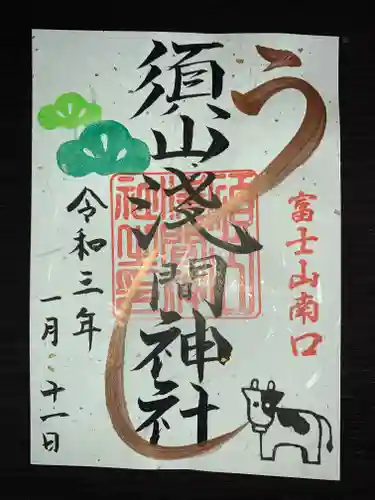 う
富士山南口
須山浅間神社
令和三年
一月十一日